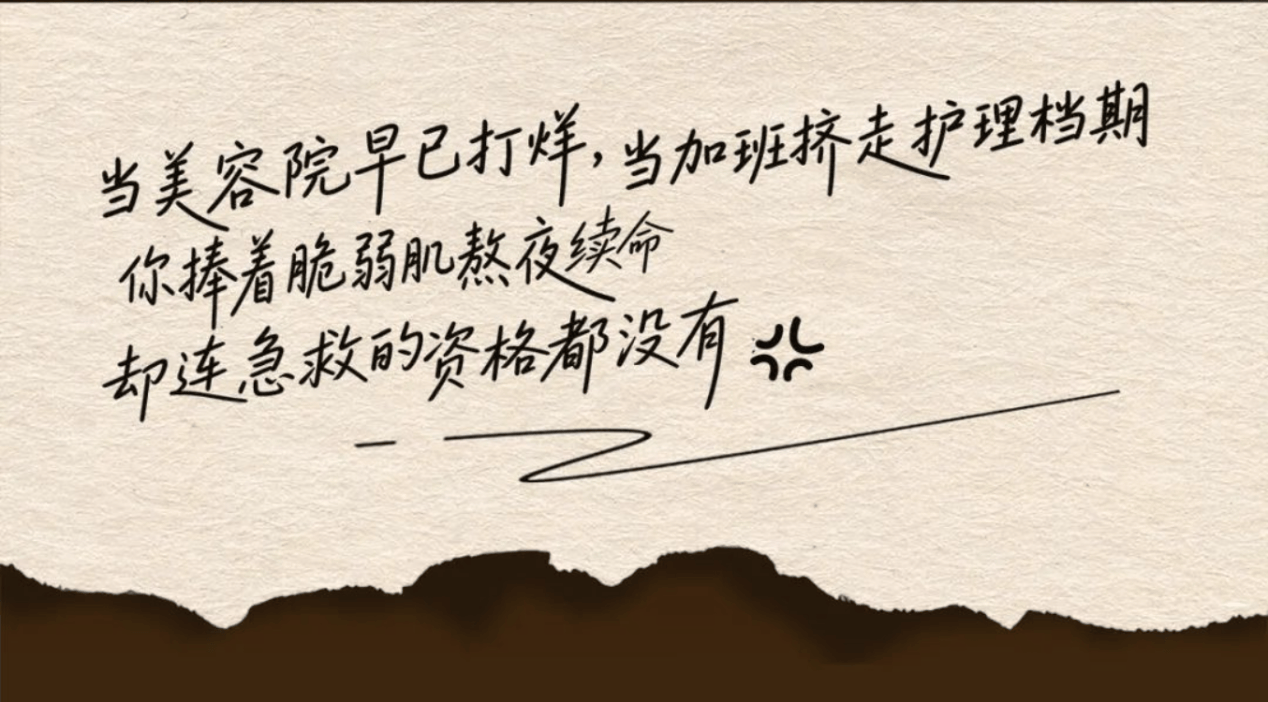 当美容院早已打烊,当加班挤走护理档期
你捧着脆弱肌熬夜续命
却连急救的资格都没有